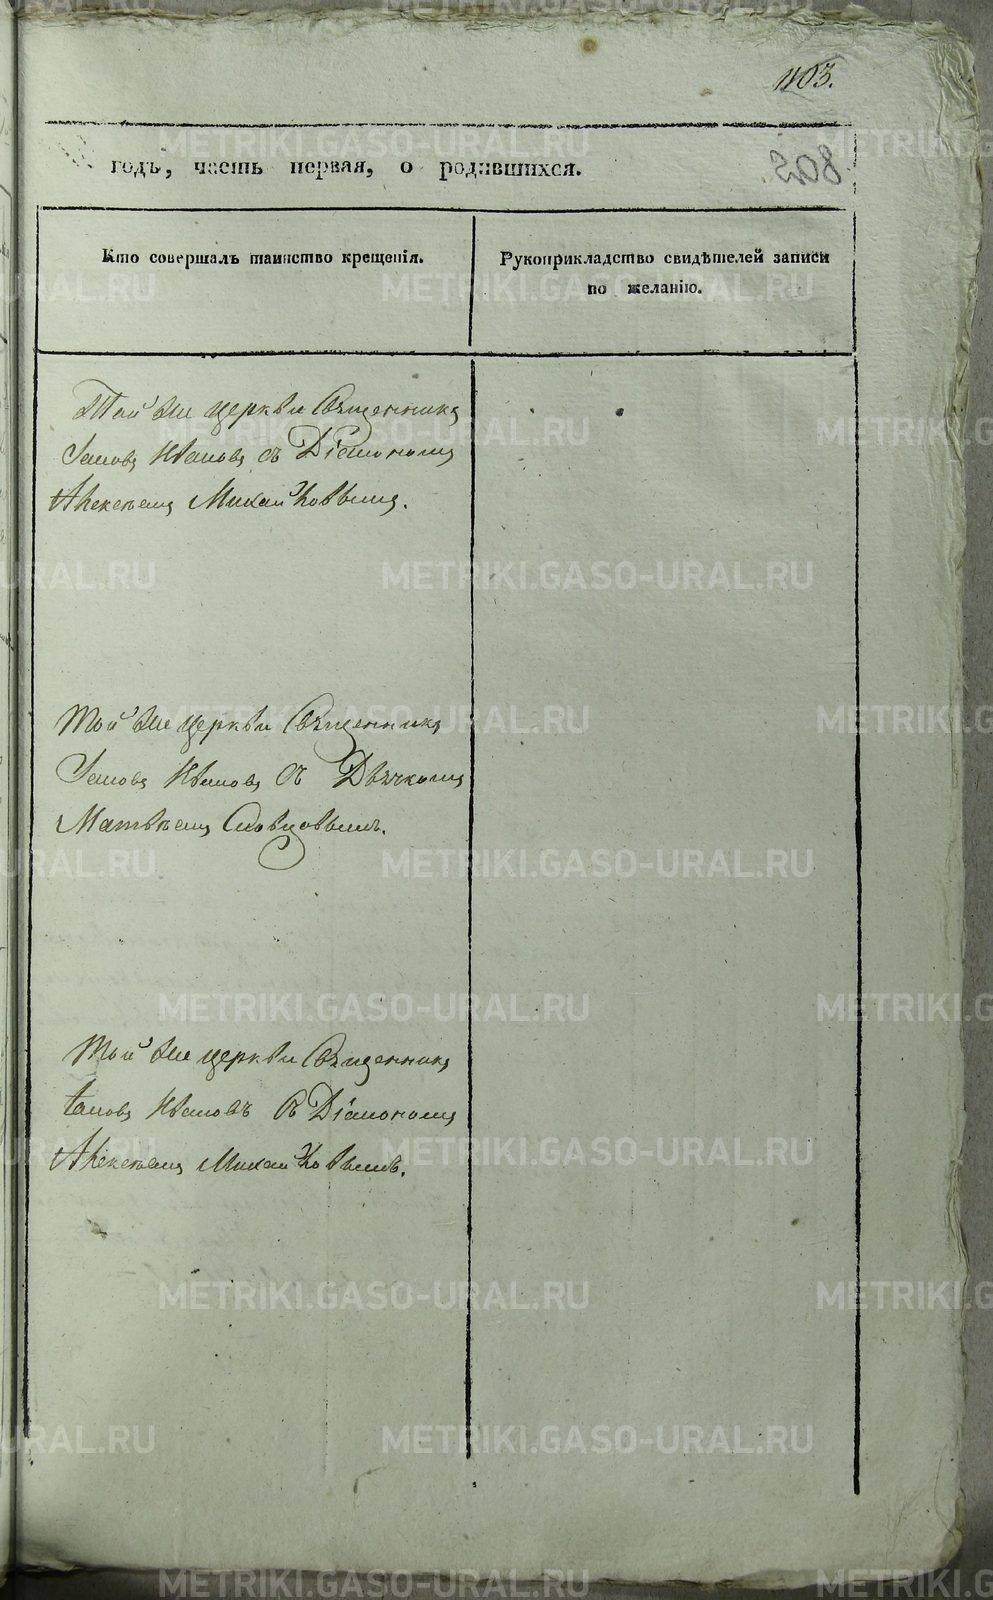 1103.
805
годъ, часть первая, о родившихся.
Кто совершалъ таинство крещенія.
Рукоприкладство свидѣтелей записи
по желанію.
Той же церкви Священникъ
Іаковъ Ивановъ съ Діакономъ
Алексѣемъ Михайловымъ.
Той же церкви Священникъ
Іаковъ Ивановъ съ Дьячкомъ
Матвѣемъ Словцовымъ.
Той же церкви Священникъ
Іаковъ Ивановъ съ Діакономъ
Алексѣемъ Михайловымъ.
METRIKI.GASO-URAL.RU